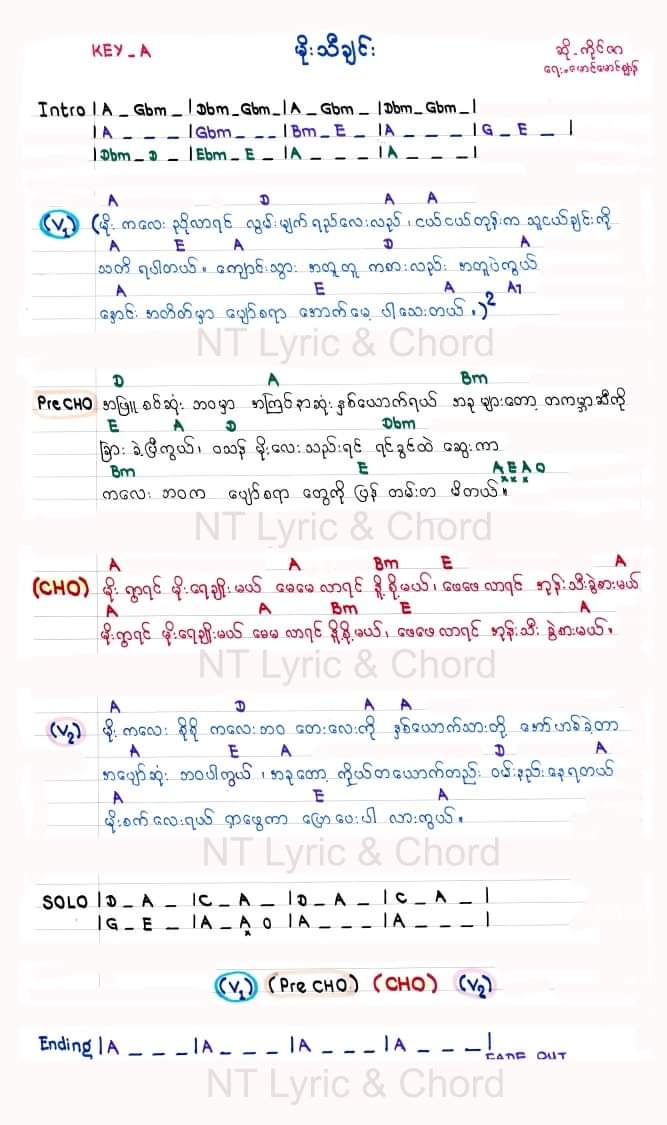 KEY_A
မိုးသီချင်း
ဆို-ကိုင်ဇာ
ရေး-မောင်မောင်ဇွန်
Intro |A _ Gbm _|Dbm_Gbm_|A _ Gbm _|Dbm_Gbm_|
|A _ _ _ |Gbm_ _ _|Bm_E _ |A _ _ _ |G _ E _ |
|Dbm_D _|Ebm_E _|A _ _ _ |A _ _ _|
A D A A
(V1) (မိုး ကလေး ခုပိုလာရင် လွမ်းမျက်ရည်လေးလည်၊ ငယ်ငယ်တုန်းက သူငယ်ချင်းကို
A E A D A
သတိ ရပါတယ်။ ကျောင်းသွား အတူတူ ကစားလည်း အတူပဲကွယ်
A E A A7
နှောင်း အတိတ်မှာ ပျော်စရာ အောက်မေ့ ပါသေးတယ်.)2
NT Lyric & Chord
D A Bm
Pre CHO အဖြူ စင်ဆုံး ဘဝမှာ အကြင်နာဆုံး နှစ်ယောက်ရယ် အခု များတော့ တကမ္ဘာဆီကို
E A D Dbm
ခြား ခဲ့ပြီကွယ်၊ ဝသန် မိုးလေး သည်းရင် ရင်ခွင်ထဲ ဆွေးကာ
Bm E A E A O
x x x
ကလေး ဘဝက ပျော်စရာ တွေကို ပြန် တမ်းတ မိတယ်။
NT Lyric & Chord
A A Bm E A
(CHO) မိုး ရွာရင် မိုးရေချိုးမယ် မေမေ လာရင် နို့စို့မယ်၊ ဖေဖေ လာရင် အုန်းသီးခွဲစားမယ်
A A Bm E A
မိုးရွာရင် မိုးရေချိုးမယ် မေမေ လာရင် နို့စို့မယ်၊ ဖေဖေလာရင် အုန်းသီး ခွဲစားမယ်၊
NT Lyric & Chord
A D A A
(V2) မိုး ကလေး စိုစို ကလေးဘဝ တေးလေးကို နှစ်ယောက်သားတို့ အော်ဟစ်ခဲ့တာ
A E A D A
အပျော်ဆုံး ဘဝပါကွယ်၊ အခုတော့ ကိုယ်တယောက်တည်း ဝမ်းနည်းနေရတယ်
A E A
မိုးစက်လေးရယ် ရှာဖွေကာ ပြောပေးပါ လားကွယ်။
NT Lyric & Chord
SOLO |D _ A _ |C _ A _ |D _ A _ |C _ A _ |
|G _ E _ |A _ A O |A _ _ _ |A _ _ _ |
x
(V1) (Pre CHO) (CHO) (V2)
Ending |A _ _ _ |A _ _ _ |A _ _ _ |A _ _ _ |
FADE OUT
NT Lyric & Chord